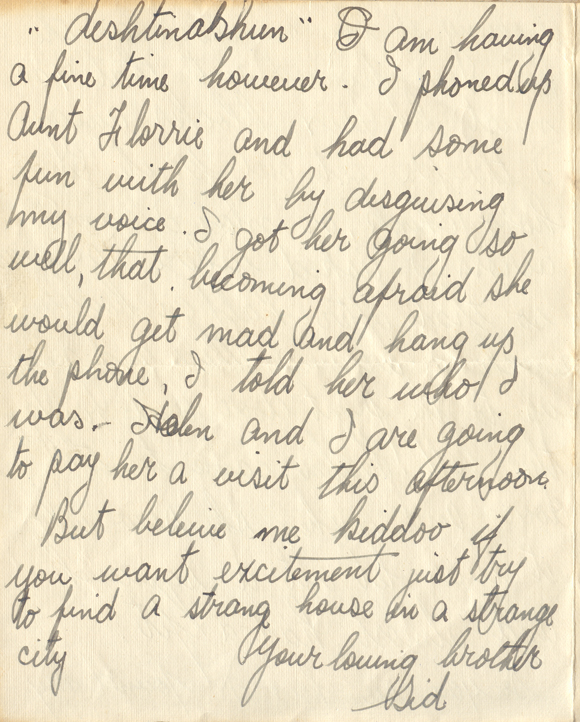 " deshtinatshun" I am having
a fine time however. I phoned up
Aunt Florrie and had some
fun with her by disguising
my voice. I got her going so
well, that becoming afraid she
would get mad and hang up
the phone, I told her who I
was. - Helen and I are going
to pay her a visit this afternoon.
But beleive me kiddoo if
you want excitement just try
to find a strang house in a strange
city Your loving brother
Sid